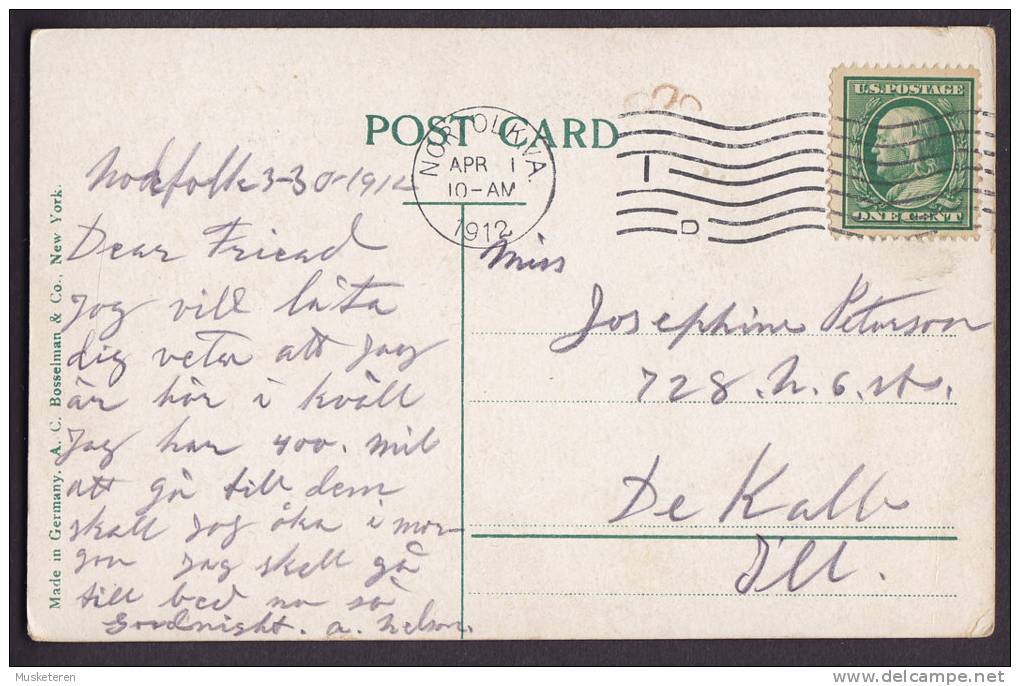 POST CARD
NORFOLK, VA.
APR 1
10-AM
1912
I
D
U.S. POSTAGE
ONE CENT
Made in Germany. A. C. Bosselman & Co., New York.
Nordfolk 3-30-1912
Dear Friend
Jag vill låta
dig veta att Jag
är här i kväll
Jag har 400. mil
att gå till dem
skall jag åka i mor
gon Jag skall gå
till bed nu så
Goodnight. A. Nelson.
Miss
Josephine Peterson
728. N. 6. st.
De Kalb
Ill.
Musketeren
www.delcampe.net